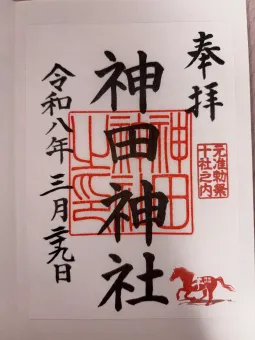 奉拝
元准勅祭
十社之内
神田神社
神田
神社
之印
令和八年三月二十九日